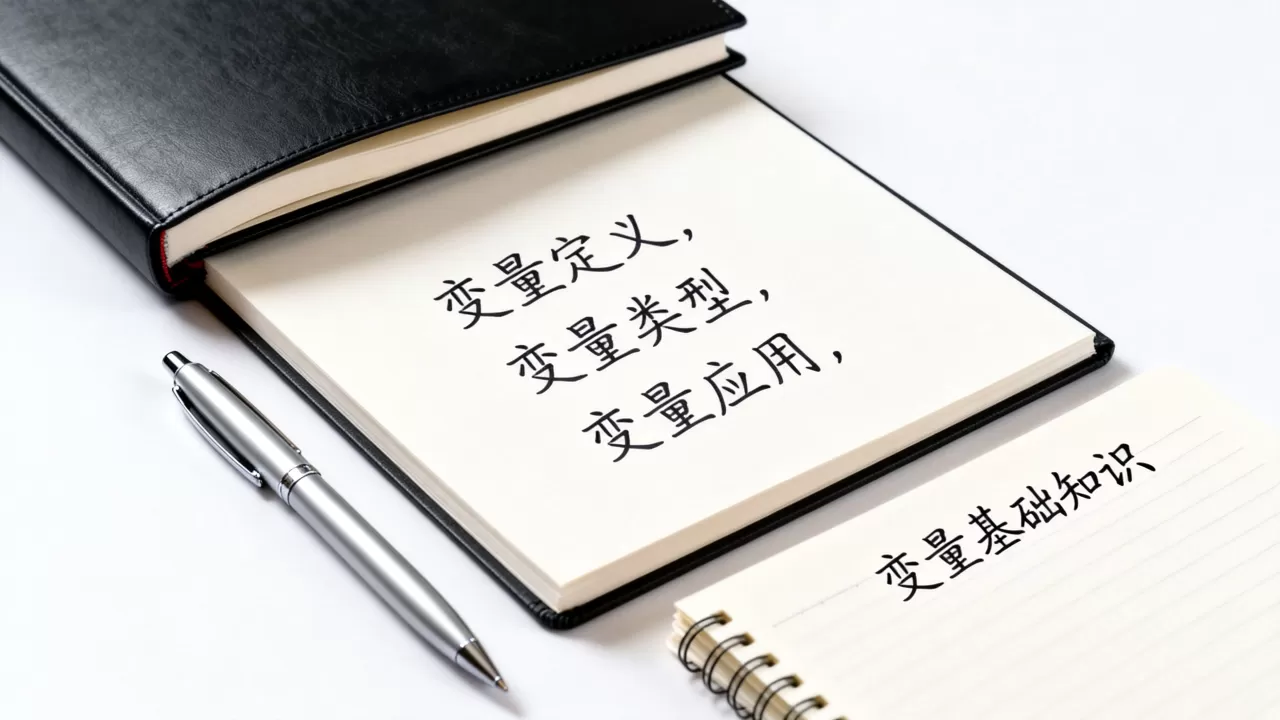 变量定义，
变量类型，
变量应用，
变量基础知识